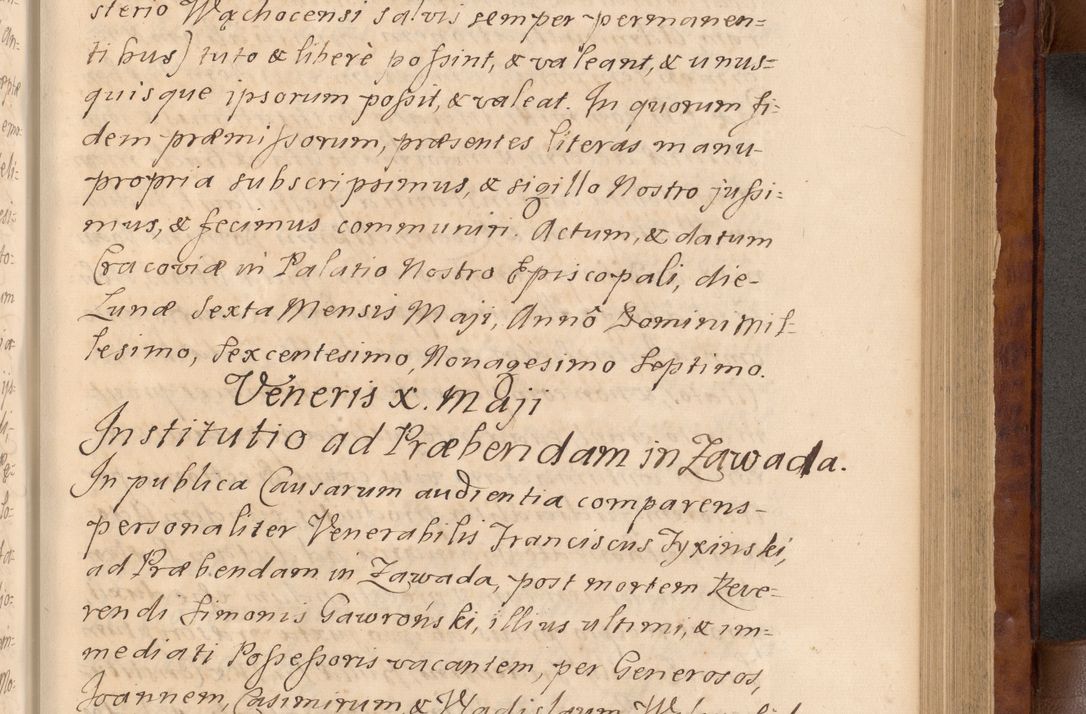 sterio Wąchocensi salvis semper permanen=
tibus) tuto & liberè possint, & valeant, & unus=
quisque ipsorum possit, & valeat. In quorum fi=
dem præmissorum, præsentes literas manu
propria subscripsimus, & sigillo Nostro jussi=
mus, & fecimus communiri. Actum, & datum
Cracoviæ in Palatio Nostro Episcopali, die
Lunæ Sexta Mensis Maji, Annô Domini Mil=
lesimo, Sexcentesimo, Nonagesimo Septimo.
Veneris X. Maji
Institutio ad Præbendam in Zawada.
In publica Causarum audientia comparens
personaliter Venerabilis Franciscus Fyxinski,
ad Præbendam in Zawada, post mortem Reve=
rendi Simonis Gawroński, illius ultimi, & im=
mediati Possessoris vacantem, per Generosos,
Joannem, Casimirum, & Wladislaum